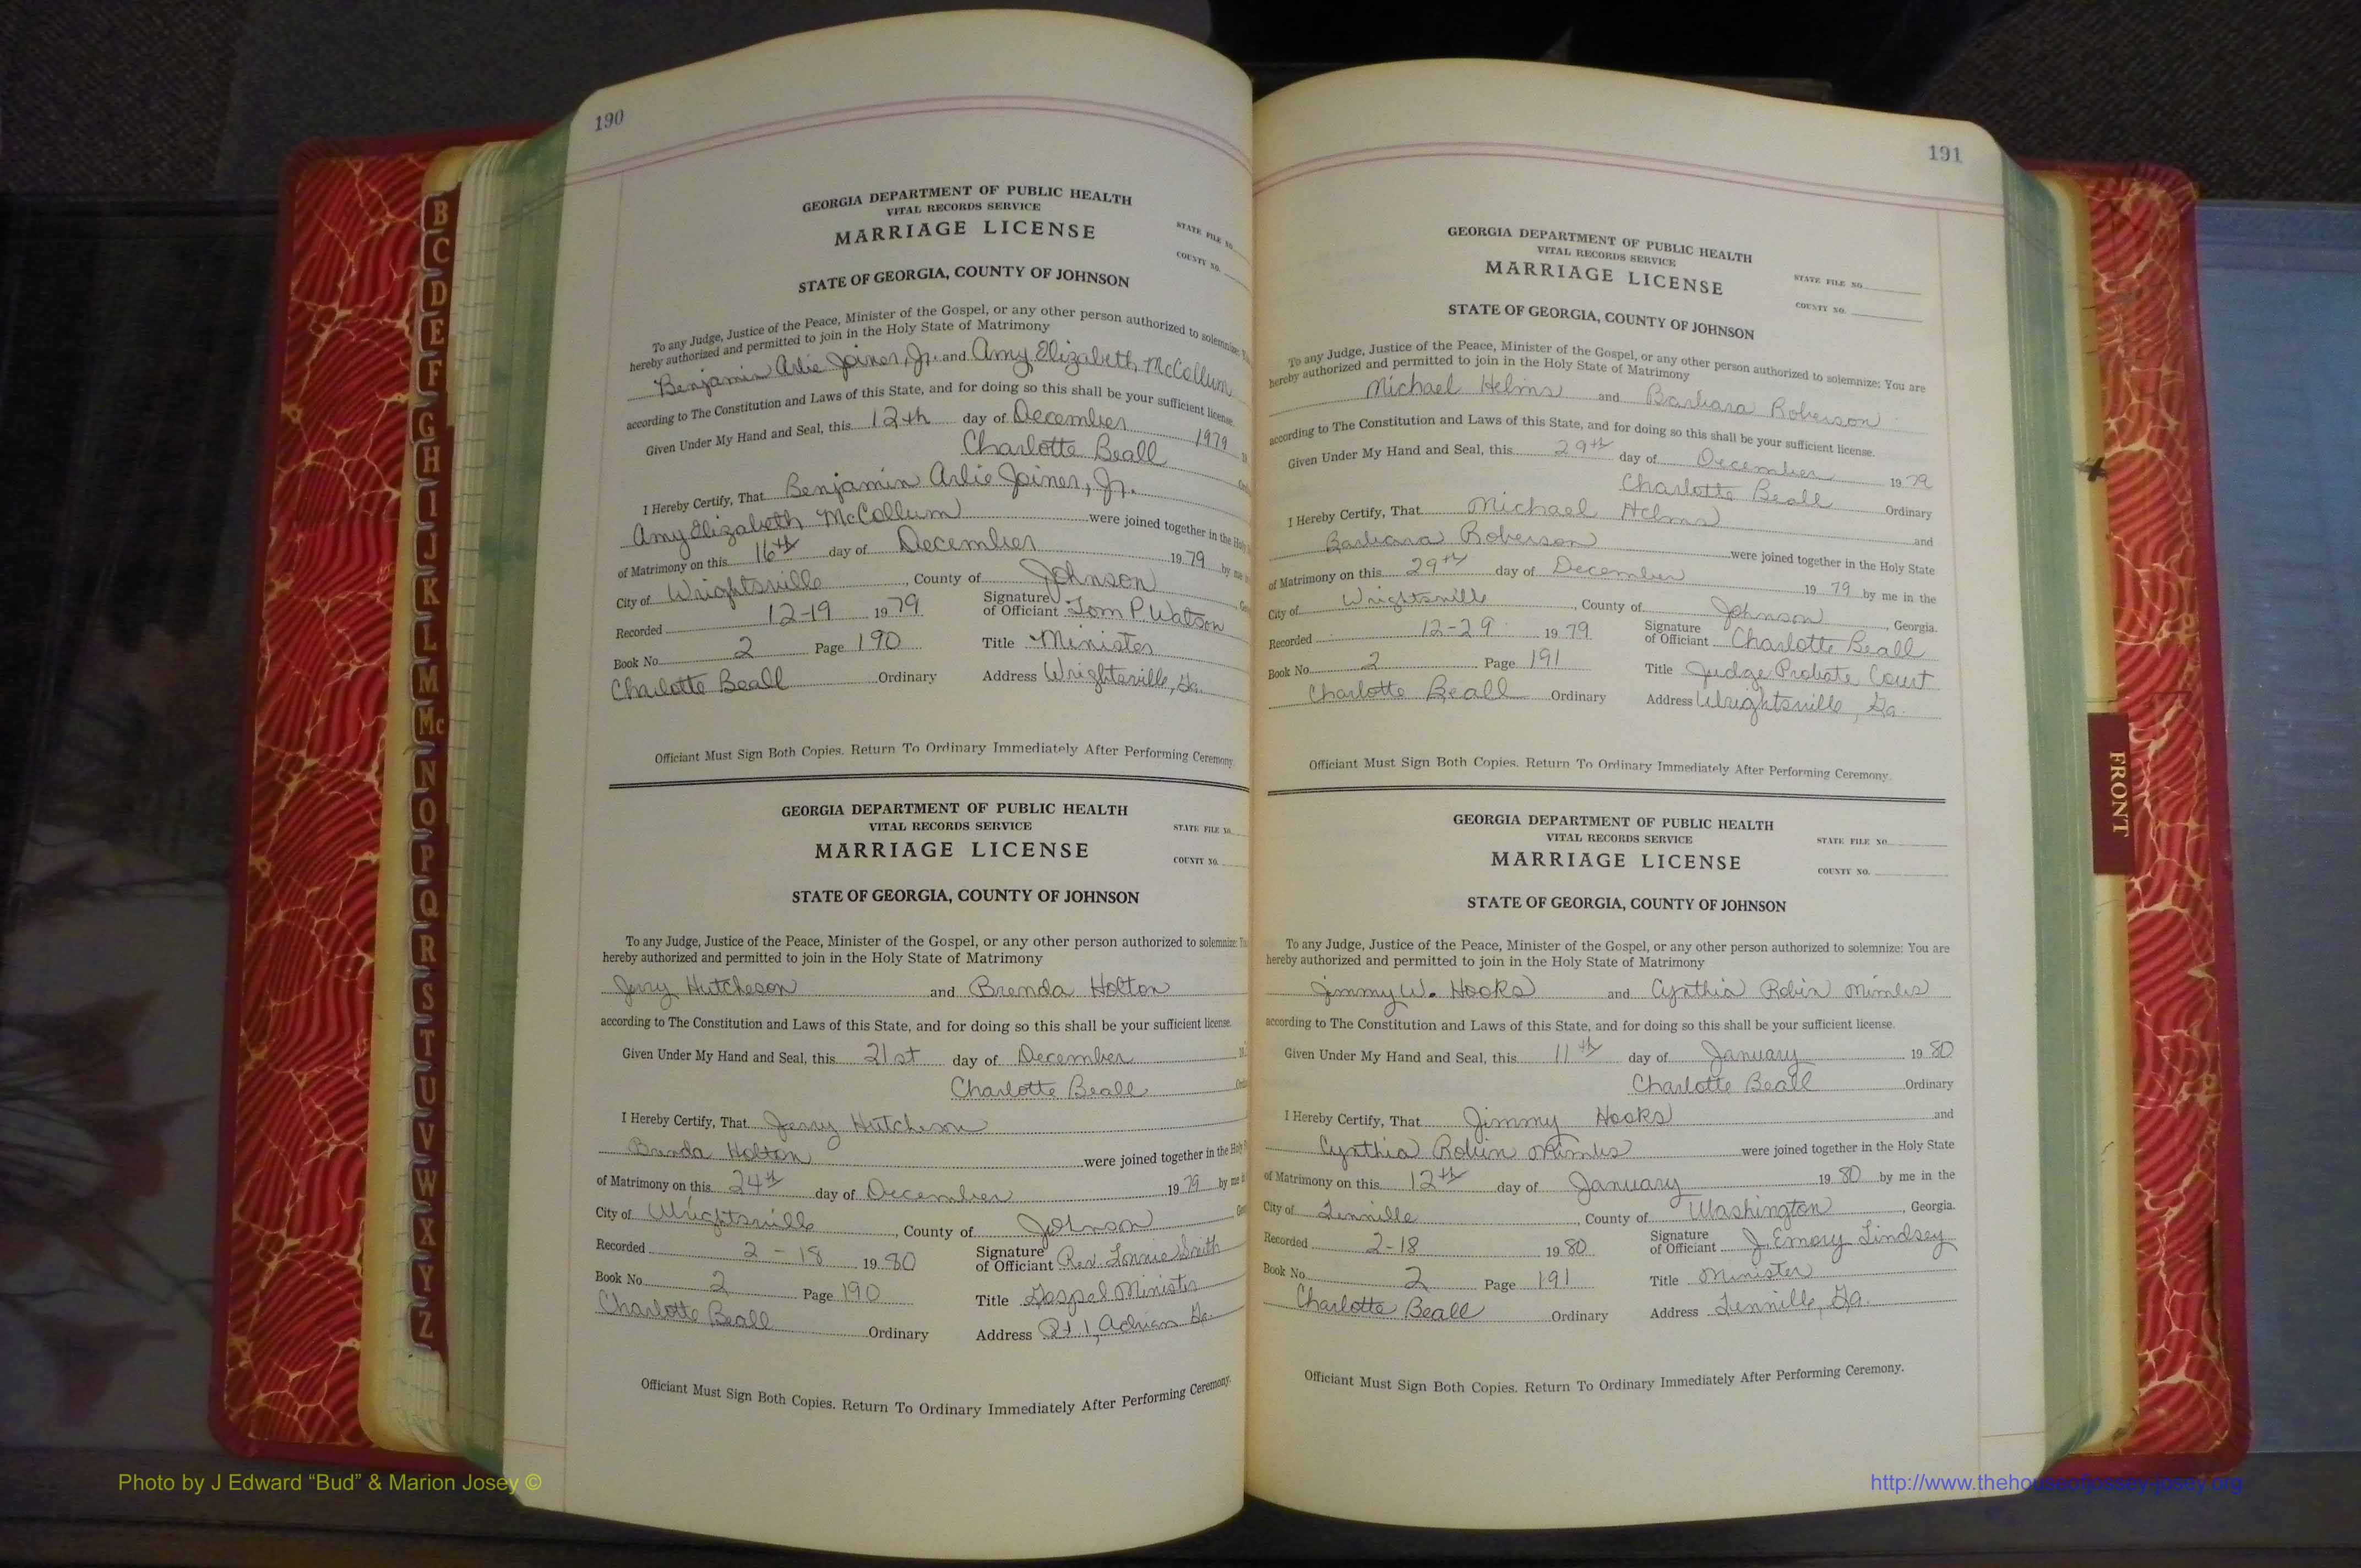 190
GEORGIA DEPARTMENT OF PUBLIC HEALTH
VITAL RECORDS SERVICE
MARRIAGE LICENSE
STATE FILE NO.
COUNTY NO.
STATE OF GEORGIA, COUNTY OF JOHNSON
To any Judge, Justice of the Peace, Minister of the Gospel, or any other person authorized to solemnize:
hereby authorized and permitted to join in the Holy State of Matrimony
Benjamin Arlie Joiner, Jr. and Amy Elizabeth McCollum
according to The Constitution and Laws of this State, and for doing so this shall be your sufficient license.
Given Under My Hand and Seal, this 12th day of December 1979
Charlotte Beall
I Hereby Certify, That Benjamin Arlie Joiner, Jr.
Amy Elizabeth McCollum were joined together in the Holy
of Matrimony on this 16th day of December 1979 by me
City of Wrightsville, County of Johnson
Recorded 12-19 1979 Signature of Officiant Tom P. Watson
Book No. 2 Page 190 Title Minister
Charlotte Beall Ordinary Address Wrightsville, Ga.
Officiant Must Sign Both Copies. Return To Ordinary Immediately After Performing Ceremony.
GEORGIA DEPARTMENT OF PUBLIC HEALTH
VITAL RECORDS SERVICE
MARRIAGE LICENSE
STATE FILE NO.
COUNTY NO.
STATE OF GEORGIA, COUNTY OF JOHNSON
To any Judge, Justice of the Peace, Minister of the Gospel, or any other person authorized to solemnize:
hereby authorized and permitted to join in the Holy State of Matrimony
Jerry Hutcheson and Brenda Holton
according to The Constitution and Laws of this State, and for doing so this shall be your sufficient license.
Given Under My Hand and Seal, this 21st day of December
Charlotte Beall
I Hereby Certify, That Jerry Hutcheson
Brenda Holton were joined together in the Holy
of Matrimony on this 24th day of December 1979 by me
City of Wrightsville, County of Johnson
Recorded 2-18 1980 Signature of Officiant Rev. Lonnie Smith
Book No. 2 Page 190 Title Gospel Minister
Charlotte Beall Ordinary Address Rt 1, Adrian Ga.
Officiant Must Sign Both Copies. Return To Ordinary Immediately After Performing Ceremony.
191
GEORGIA DEPARTMENT OF PUBLIC HEALTH
VITAL RECORDS SERVICE
MARRIAGE LICENSE
STATE FILE NO.
COUNTY NO.
STATE OF GEORGIA, COUNTY OF JOHNSON
To any Judge, Justice of the Peace, Minister of the Gospel, or any other person authorized to solemnize: You are
hereby authorized and permitted to join in the Holy State of Matrimony
Michael Helms and Barbara Roberson
according to The Constitution and Laws of this State, and for doing so this shall be your sufficient license.
Given Under My Hand and Seal, this 29th day of December 1979
Charlotte Beall Ordinary
I Hereby Certify, That Michael Helms and
Barbara Roberson were joined together in the Holy State
of Matrimony on this 29th day of December 1979 by me in the
City of Wrightsville, County of Johnson, Georgia.
Recorded 12-29 1979 Signature of Officiant Charlotte Beall
Book No. 2 Page 191 Title Judge Probate Court
Charlotte Beall Ordinary Address Wrightsville, Ga.
Officiant Must Sign Both Copies. Return To Ordinary Immediately After Performing Ceremony.
GEORGIA DEPARTMENT OF PUBLIC HEALTH
VITAL RECORDS SERVICE
MARRIAGE LICENSE
STATE FILE NO.
COUNTY NO.
STATE OF GEORGIA, COUNTY OF JOHNSON
To any Judge, Justice of the Peace, Minister of the Gospel, or any other person authorized to solemnize: You are
hereby authorized and permitted to join in the Holy State of Matrimony
Jimmy W. Hooks and Cynthia Robin Mimbs
according to The Constitution and Laws of this State, and for doing so this shall be your sufficient license.
Given Under My Hand and Seal, this 11th day of January 1980
Charlotte Beall Ordinary
I Hereby Certify, That Jimmy Hooks and
Cynthia Robin Mimbs were joined together in the Holy State
of Matrimony on this 12th day of January 1980 by me in the
City of Tennille, County of Washington, Georgia.
Recorded 2-18 1980 Signature of Officiant J. Emory Lindsey
Book No. 2 Page 191 Title Minister
Charlotte Beall Ordinary Address Tennille, Ga.
Officiant Must Sign Both Copies. Return To Ordinary Immediately After Performing Ceremony.
B
C
D
E
F
G
H
I
J
K
L
M
Mc
N
O
P
Q
R
S
T
U
V
W
X
Y
Z
FRONT
Photo by J Edward “Bud” & Marion Josey ©
http://www.thehouseofjossey-josey.org